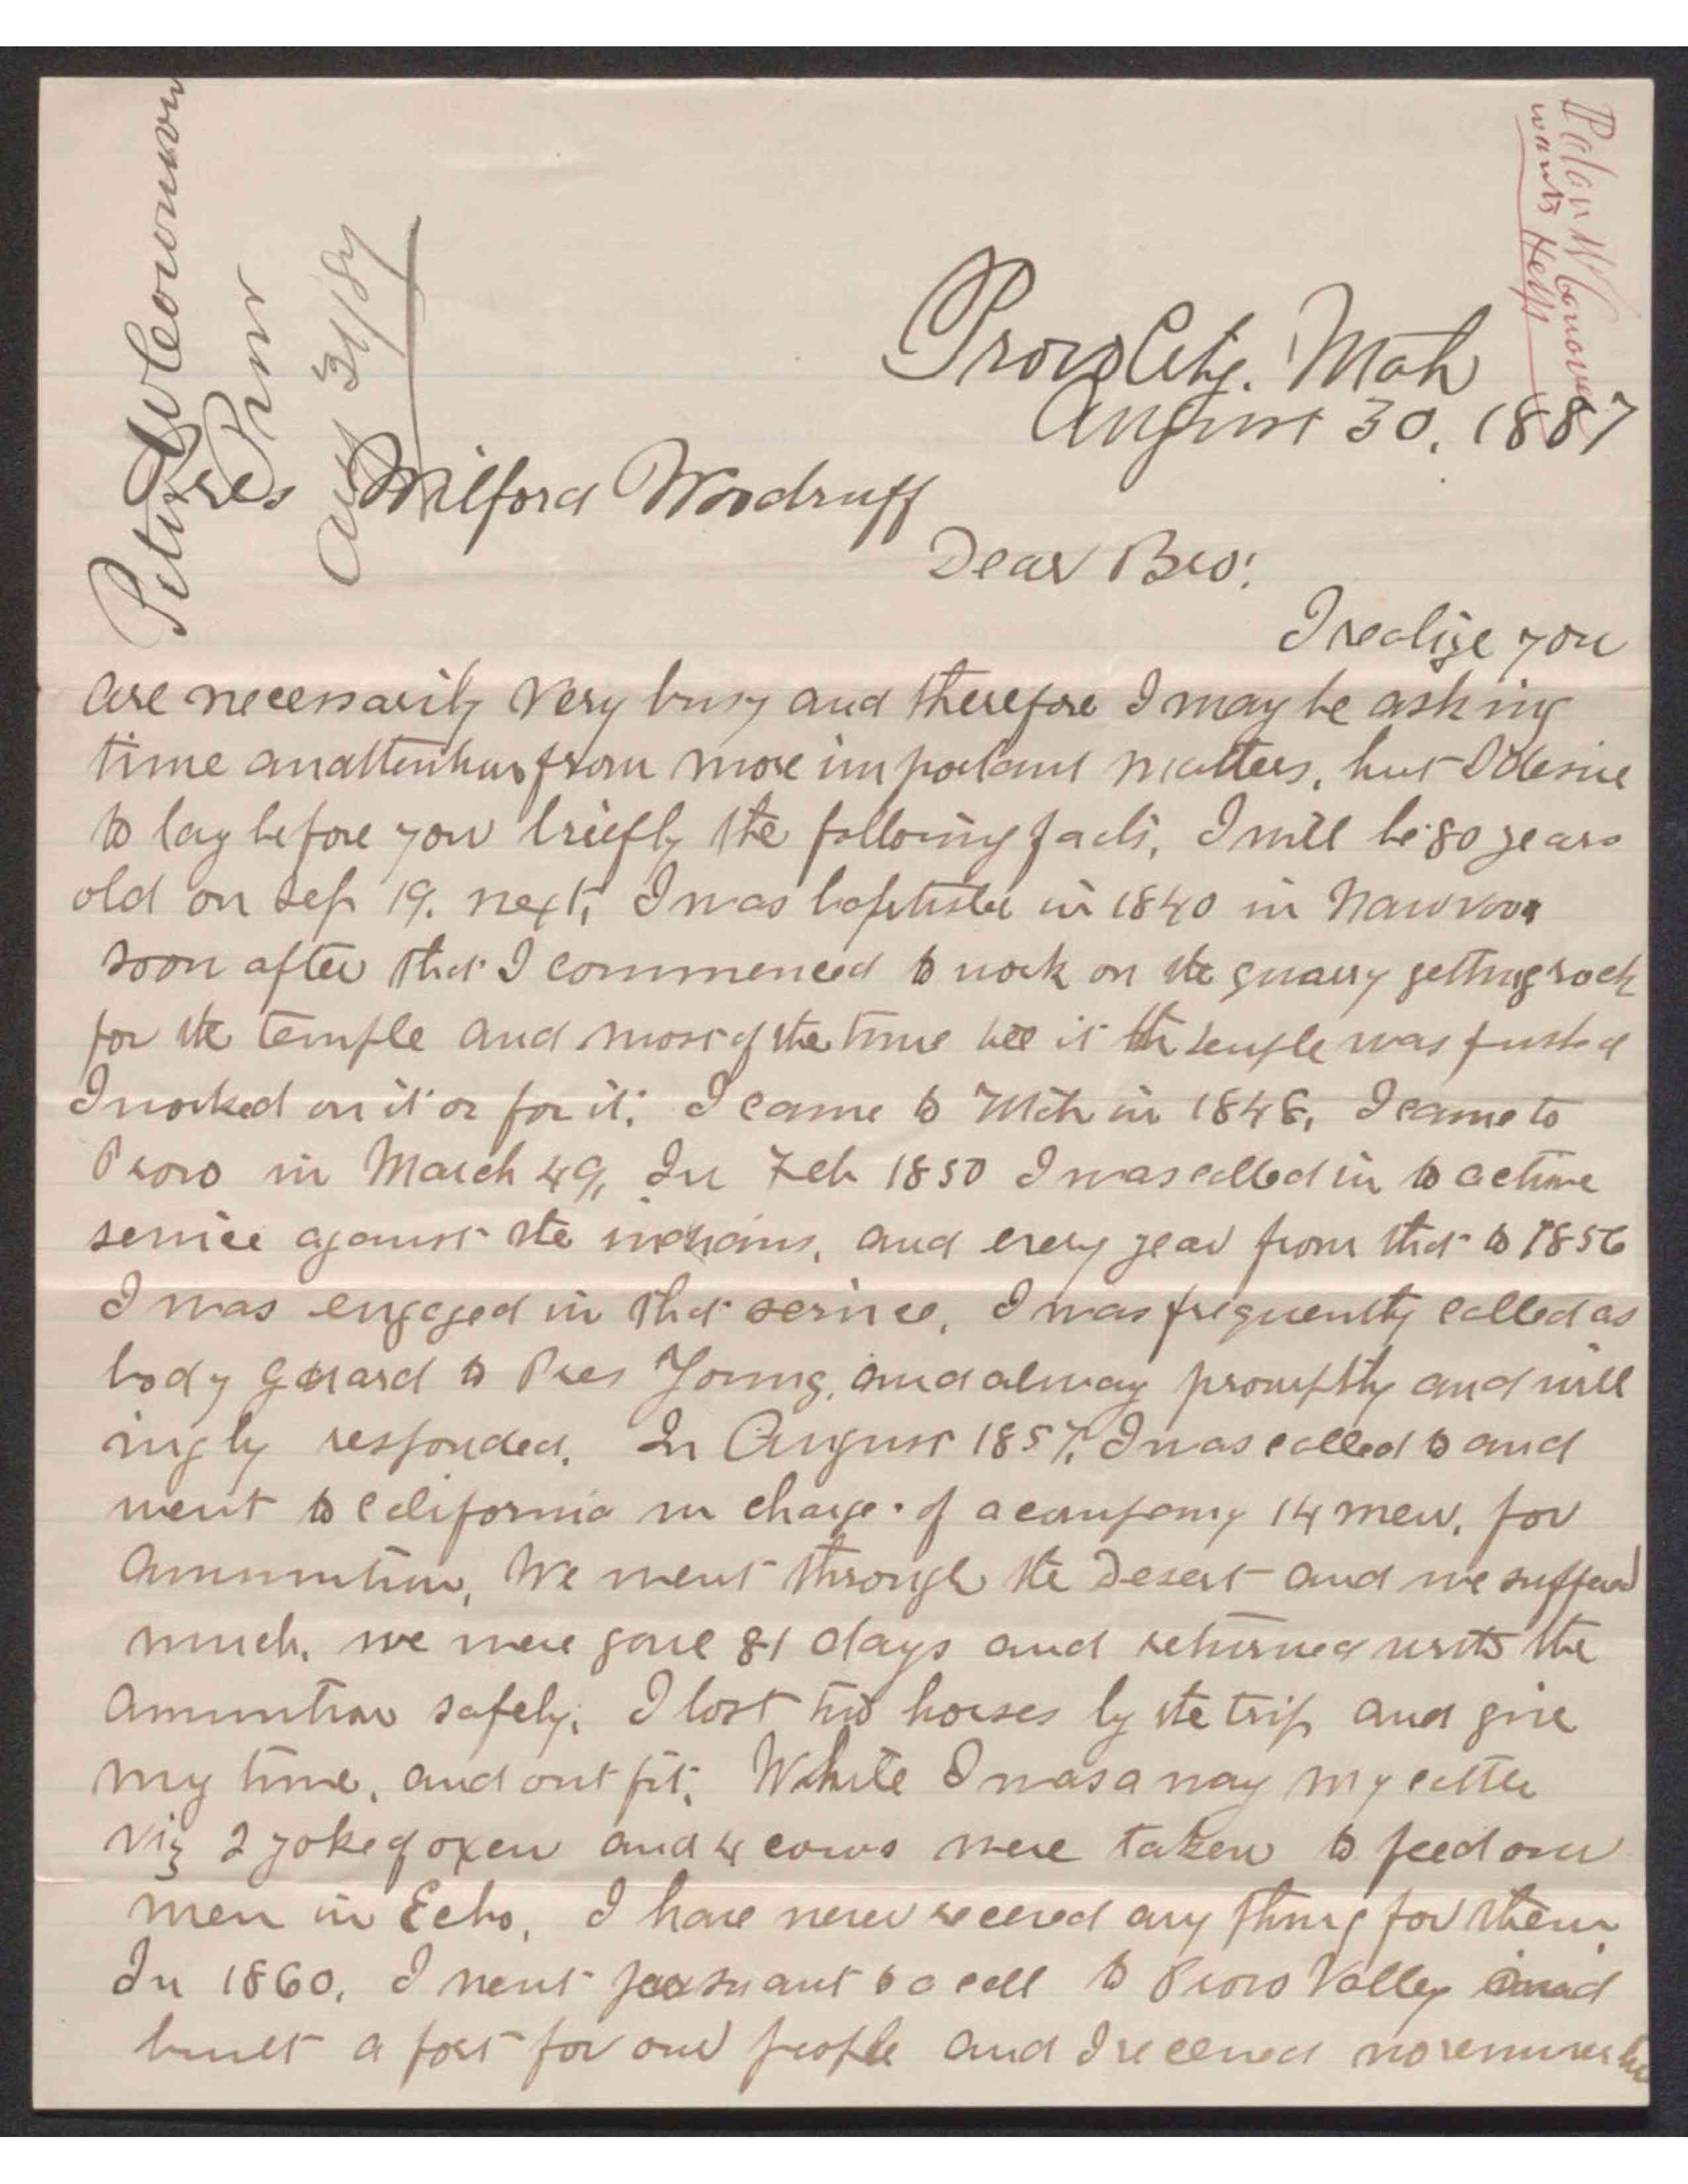 Peter W Conover
Prov
Aug 31/87
Peter W Conover
wants Help
Provo City. Utah
August 30, 1887
Pres Wilford Woodruff
Dear Bro:
I realize you
are necessarily very busy and therefore I may be asking
time and attention from more important matters, but I desire
to lay before you briefly the following facts, I will be 80 years
old on Sep 19. next, I was baptised in 1840 in Nauvoo
soon after that I commenced to work on the quarry getting rock
for the temple and most of the time till it the temple was finished
I worked on it or for it; I came to Utah in 1848, I came to
Provo in March 49, In Feb 1850 I was called in to active
service against the indians, and every year from that to 1856
I was engaged in that service, I was frequently called as
body guard to Pres Young, and alway promptly and will
ingly responded, In August 1857, I was called to and
went to California in charge of a company 14 men, for
Ammunition, We went through the Desert and we suffered
much, we were gone 81 days and returned with the
Ammunition safely; I lost two horses by the trip and give
my time, and out fit; While I was a way my cattle
viz 2 yoke of oxen and 4 cows were taken to feed our
men in Echo, I have never receved any thing for them.
In 1860, I went pursuant to a call to Provo Valley and
built a fort for our people and I receved no